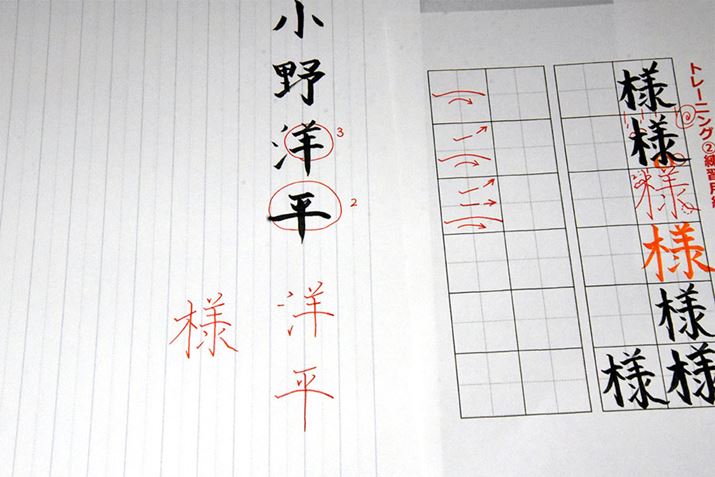 トレーニング②練習用紙
様
様
様
様
様
様様
小野洋平
3
2
洋平
様